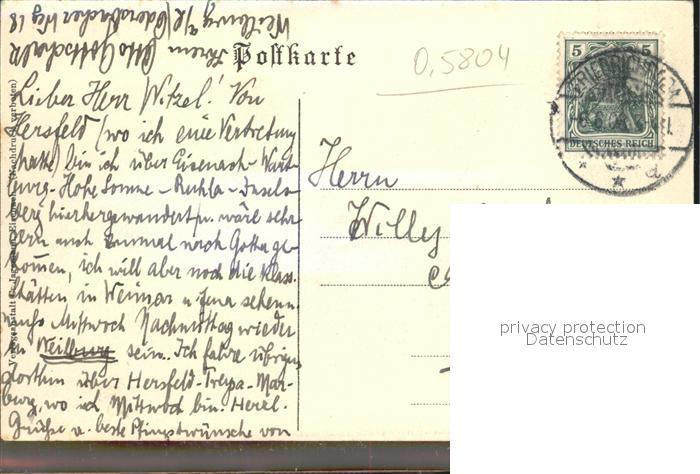 Weilburg a/L. Odersbacher Weg 18
Ihrem Otto Gottschalk
Postkarte
0,5804
5 5
DEUTSCHES REICH
Lieber Herr Witzel! Von
Hersfeld (wo ich eine Vertretung
hatte) bin ich über Eisenach-Wart-
burg-Hohe Sonne-Ruhla-Insels-
berg hierhergewandert u. wäre sehr
gern auch einmal nach Gotha ge-
kommen, ich will aber noch die klass.
Stätten in Weimar u. Jena sehen u.
muß Mittwoch Nachmittag wieder
in Weilburg sein. Ich fahre übrigens
dorthin über Hersfeld-Treysa-Mar-
burg, wo ich Mittwoch bin. Herzl.
Grüße u. beste Pfingstwünsche von
Herrn
Willy
privacy protection
Datenschutz